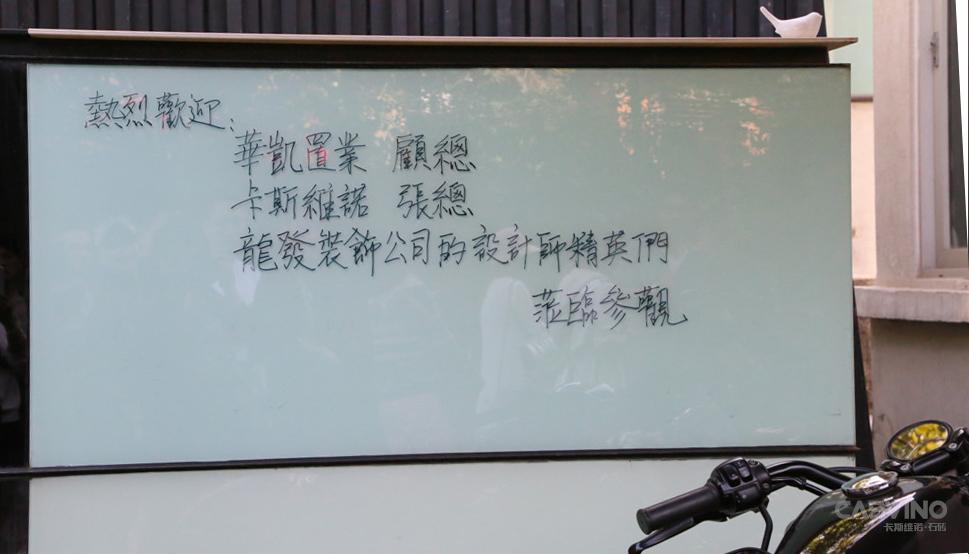 熱烈歡迎：
華凱置業 顧總
卡斯維諾 張總
龍發裝飾公司的設計師精英們
蒞臨參觀
CABVINO
卡斯维诺·石砖